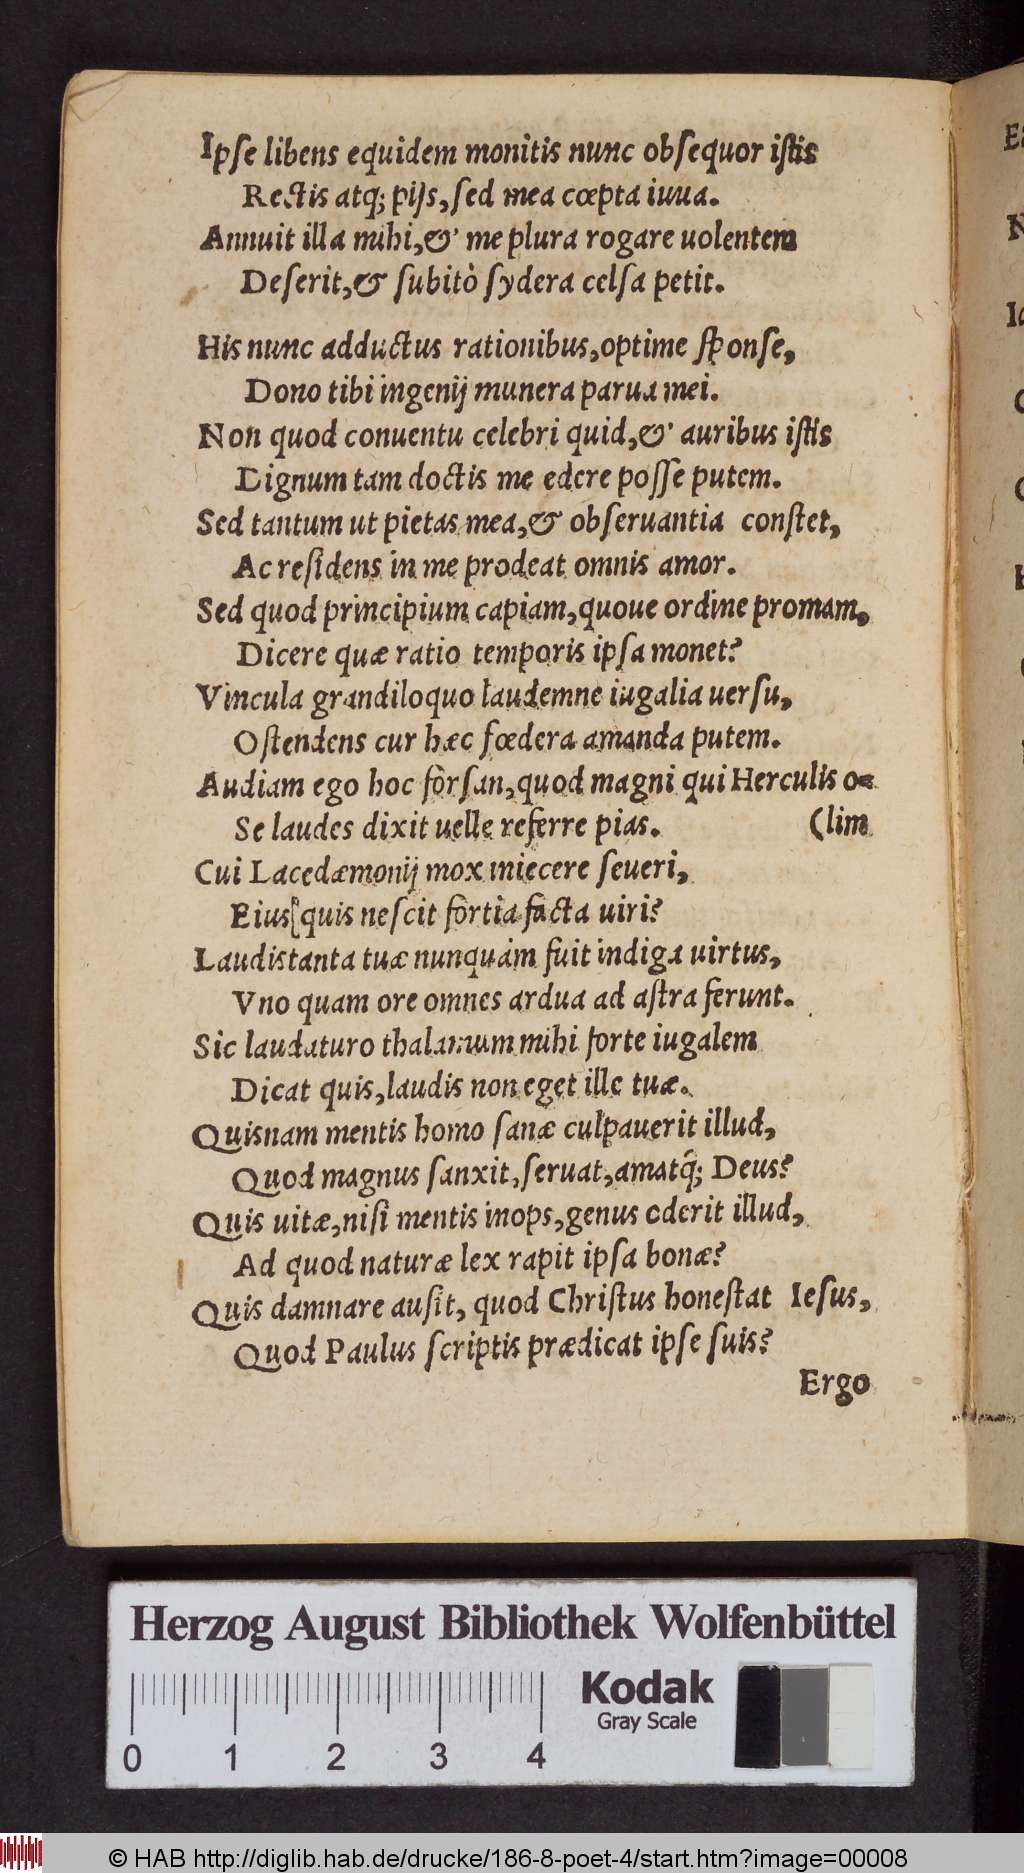 Ipſe libens equidem monitis nunc obſequor iſtis
Rectis atq; pijs, ſed mea cœpta iuua.
Annuit illa mihi, & me plura rogare uolentem
Deſerit, & ſubitò ſydera celſa petit.
His nunc adductus rationibus, optime ſponſe,
Dono tibi ingenij munera parua mei.
Non quod conuentu celebri quid, & auribus iſtis
Dignum tam doctis me edere poſſe putem.
Sed tantum ut pietas mea, & obſeruantia conſtet,
Ac reſidens in me prodeat omnis amor.
Sed quod principium capiam, quoue ordine promam,
Dicere quæ ratio temporis ipſa monet?
Vincula grandiloquo laudemne iugalia uerſu,
Oſtendens cur hæc fœdera amanda putem.
Audiam ego hoc forſan, quod magni qui Herculis o=
Se laudes dixit uelle referre pias. (lim
Cui Lacedæmonij mox iniecere ſeueri,
Eius quis neſcit fortia facta uiri?
Laudis tanta tuæ nunquàm fuit indiga uirtus,
Vno quam ore omnes ardua ad aſtra ferunt.
Sic laudaturo thalamum mihi forte iugalem
Dicat quis, laudis non eget ille tuæ.
Quisnam mentis homo ſanæ culpauerit illud,
Quod magnus ſanxit, ſeruat, amatq́; Deus?
Quis uitæ, niſi mentis inops, genus oderit illud,
Ad quod naturæ lex rapit ipſa bonæ?
Quis damnare auſit, quod Chriſtus honeſtat Ieſus,
Quod Paulus ſcriptis prædicat ipſe ſuis?
Ergo
Herzog August Bibliothek Wolfenbüttel
Kodak
Gray Scale
0 1 2 3 4
© HAB http://diglib.hab.de/drucke/186-8-poet-4/start.htm?image=00008